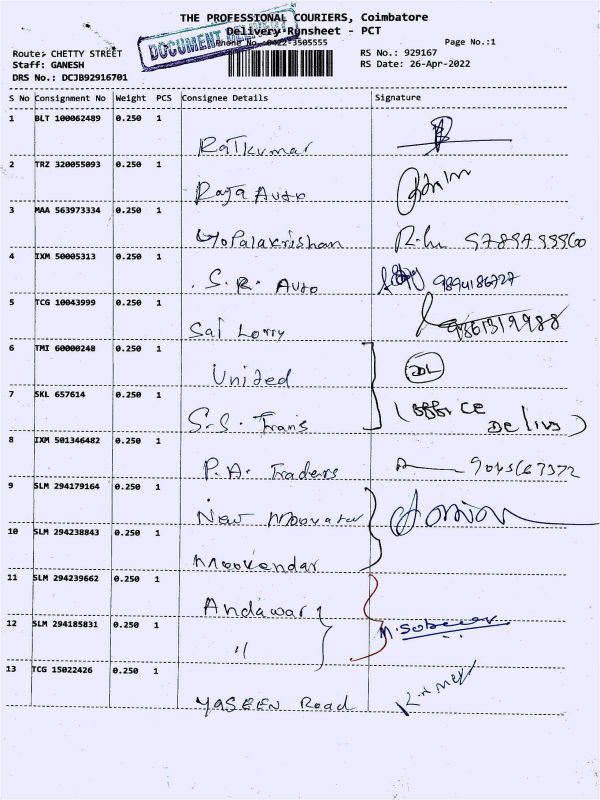 THE PROFESSIONAL COURIERS, Coimbatore
Delivery Runsheet - PCT
DOCUMENT DELIVERY
Phone No. :0422-3505555
Page No.:1
Route: CHETTY STREET
RS No.: 929167
Staff: GANESH
RS Date: 26-Apr-2022
DRS No.: DCJB92916701
S No Consignment No Weight PCS Consignee Details Signature
1 BLT 100062489 0.250 1
Rajkumar
2 TRZ 320055093 0.250 1
Raja Auto
3 MAA 563973334 0.250 1
Gopalakrishan
4 IXM 50005313 0.250 1
S. R. Auto 9894186727
5 TCG 10043999 0.250 1
Sai Lorry
6 TMI 60000248 0.250 1
United
7 SKL 657614 0.250 1
(OFFICE
S.S. Trans DELIVS)
8 IXM 501346482 0.250 1
P.A. Traders
9 SLM 294179164 0.250 1
New
10 SLM 294238843 0.250 1
Moovendar
11 SLM 294239662 0.250 1
Andawar
12 SLM 294185831 0.250 1
"
13 TCG 15022426 0.250 1
YASEEN Road